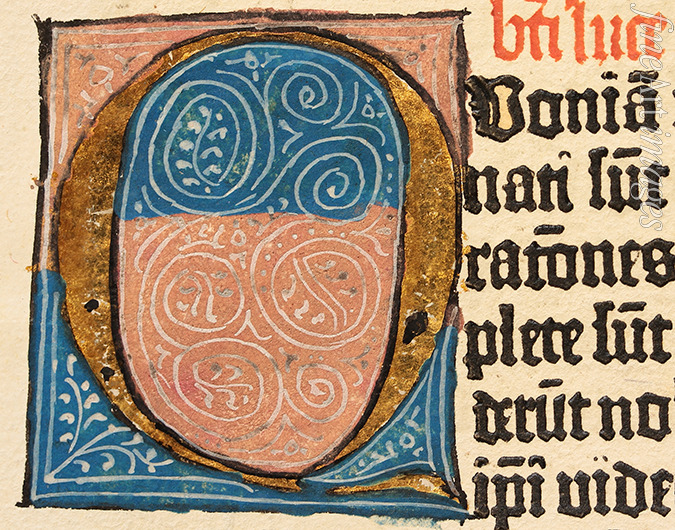 bti luce
Q
Voniā
nati sūt
ratōnes
plete sūt
derūt no
ip̄i vide
fineart images